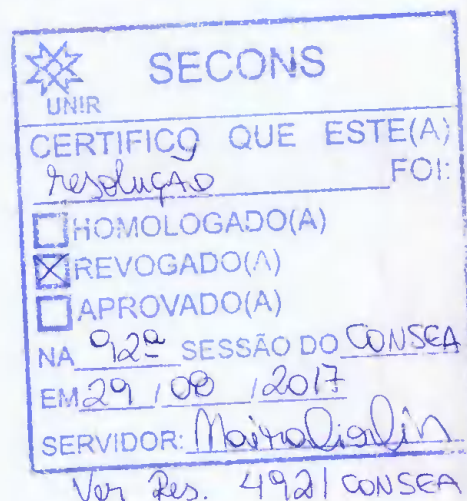 SECONS
UNIR
CERTIFICO QUE ESTE(A)
resolução FOI:
HOMOLOGADO(A)
REVOGADO(A)
APROVADO(A)
NA 92ª SESSÃO DO CONSEA
EM 29 / 08 / 2017
SERVIDOR:
Ver Res. 492/CONSEA